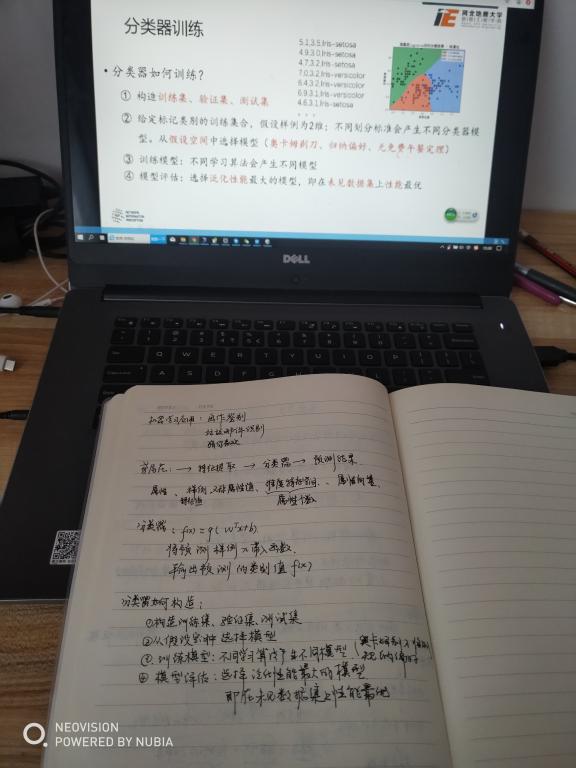 分类器训练
河北地质大学
• 分类器如何训练？
① 构造训练集、验证集、测试集
② 给定标记类别的训练集合，假设样例为2维；不同划分标准会产生不同分类器模
型。从假设空间中选择模型（奥卡姆剃刀、归纳偏好、无免费午餐定理）
③ 训练模型：不同学习算法会产生不同模型
④ 模型评估：选择泛化性能最大的模型，即在未见数据集上性能最优
5.1,3.5,Iris-setosa
4.9,3.0,Iris-setosa
4.7,3.2,Iris-setosa
7.0,3.2,Iris-versicolor
6.4,3.2,Iris-versicolor
6.9,3.1,Iris-versicolor
4.6,3.1,Iris-setosa
DELL
机器学习应用：画作鉴别
垃圾邮件识别
→ 特征提取 → 分类器 → 预测结果
属性、样例、属性值、
属性个数
分类器：f(x)=g(wᵀx+b)
将预测样例x带入函数
输出预测的类别值f(x)
分类器如何构造：
①构造训练集、验证集、测试集
②从假设空间中选择模型
③训练模型：不同学习算法产生不同模型
④模型评估：选择泛化性能最大的模型
即在未见数据集上性能最优
NEOVISION
POWERED BY NUBIA